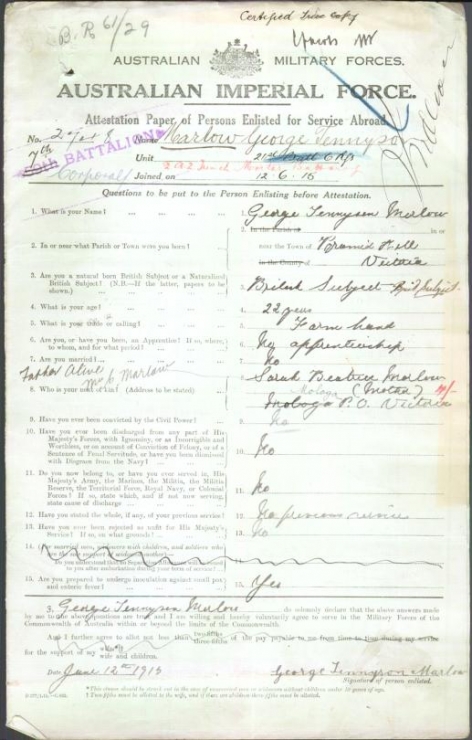 Certified True Copy
B.R 61/29
AUSTRALIAN MILITARY FORCES.
AUSTRALIAN IMPERIAL FORCE.
Attestation Paper of Persons Enlisted for Service Abroad.
No. Name Marlow George Tennyson
7th
BATTALION
Unit
Corporal
Joined on 12.6.15
Questions to be put to the Person Enlisting before Attestation.
1. What is your Name? ... George Tennyson Marlow
2. In or near what Parish or Town were you born? ... In the Parish of in or
near the Town of Pyramid Hill
in the County of Victoria
3. Are you a natural born British Subject or a Naturalized
British Subject? (N.B.—If the latter, papers to be
shown.) British Subject
4. What is your age? ... 22 years
5. What is your trade or calling? ... Farm hand
6. Are you, or have you been, an Apprentice? If so, where,
to whom, and for what period? No apprenticeship
7. Are you married? ... No
Father Alive
Mr C Marlow
8. Who is your next of kin? (Address to be stated) Sarah Beatrice Marlow
(Mother)
Mologa P.O. Victoria
9. Have you ever been convicted by the Civil Power? ... No
10. Have you ever been discharged from any part of His
Majesty's Forces, with Ignominy, or as Incorrigible and
Worthless, or on account of Conviction of Felony, or of a
Sentence of Penal Servitude, or have you been dismissed
with Disgrace from the Navy? No
11. Do you now belong to, or have you ever served in, His
Majesty's Army, the Marines, the Militia, the Militia
Reserve, the Territorial Force, Royal Navy, or Colonial
Forces? If so, state which, and if not now serving,
state cause of discharge No
12. Have you stated the whole, if any, of your previous service? No previous service
13. Have you ever been rejected as unfit for His Majesty's
Service? If so, on what grounds? No
14.
15. Are you prepared to undergo inoculation against small pox
and enteric fever? 15. Yes
I, George Tennyson Marlow do solemnly declare that the above answers made
by me to the above questions are true, and I am willing and hereby voluntarily agree to serve in the Military Forces of the
Commonwealth of Australia within or beyond the limits of the Commonwealth.
And I further agree to allot not less than two-fifths three-fifths of the pay payable to me from time to time during my service
for the support of my wife wife and children.
Date June 12th 1915 George Tennyson Marlow
Signature of person enlisted.